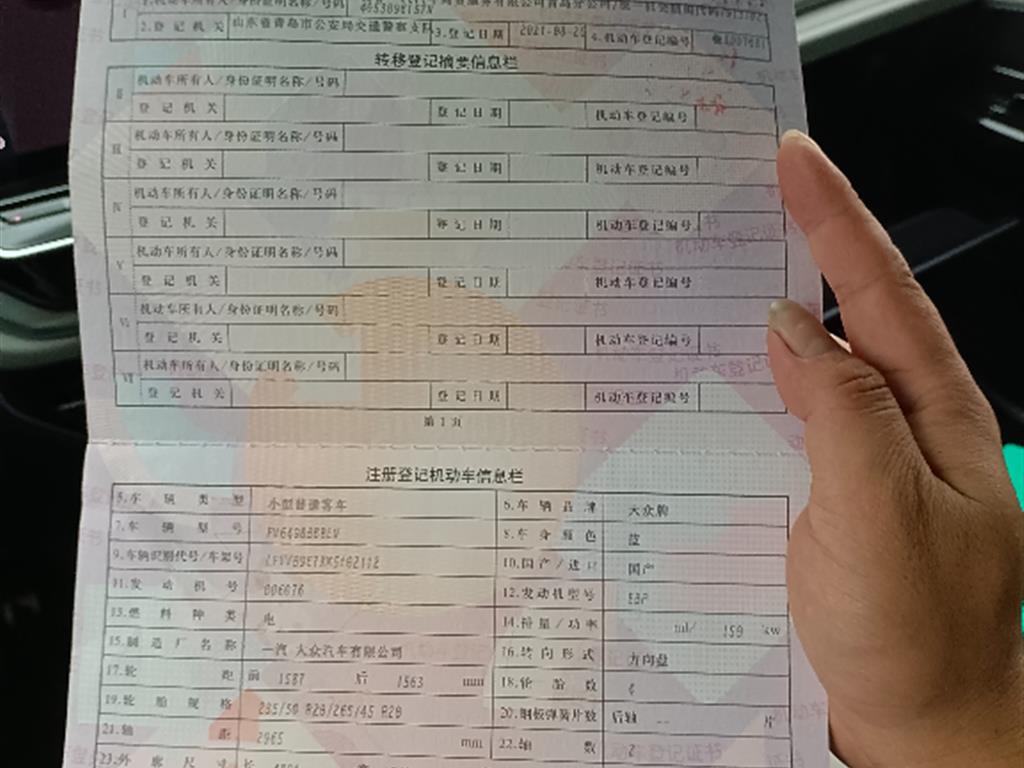 2.登记机关 山东省青岛市公安局交通警察支队 3.登记日期 2021-08-25 4.机动车登记编号
转移登记摘要信息栏
Ⅱ 机动车所有人/身份证明名称/号码
登记机关 登记日期 机动车登记编号
Ⅲ 机动车所有人/身份证明名称/号码
登记机关 登记日期 机动车登记编号
Ⅳ 机动车所有人/身份证明名称/号码
登记机关 登记日期 机动车登记编号
Ⅴ 机动车所有人/身份证明名称/号码
登记机关 登记日期 机动车登记编号
Ⅵ 机动车所有人/身份证明名称/号码
登记机关 登记日期 机动车登记编号
Ⅶ 机动车所有人/身份证明名称/号码
登记机关 登记日期 机动车登记编号
第 1 页
注册登记机动车信息栏
5.车辆类型 小型普通客车 6.车辆品牌 大众牌
7.车辆型号 8.车身颜色 蓝
9.车辆识别代号/车架号 10.国产/进口 国产
11.发动机号 006676 12.发动机型号
13.燃料种类 电 14.排量/功率 ml/ 150 kw
15.制造厂名称 一汽-大众汽车有限公司 16.转向形式 方向盘
17.轮距 前 1587 后 1563 mm 18.轮胎数 4
19.轮胎规格 235/50 R20/265/45 R20 20.钢板弹簧片数 后轴 -- 片
21.轴距 2965 mm 22.轴数 2
23.外廓尺寸 长